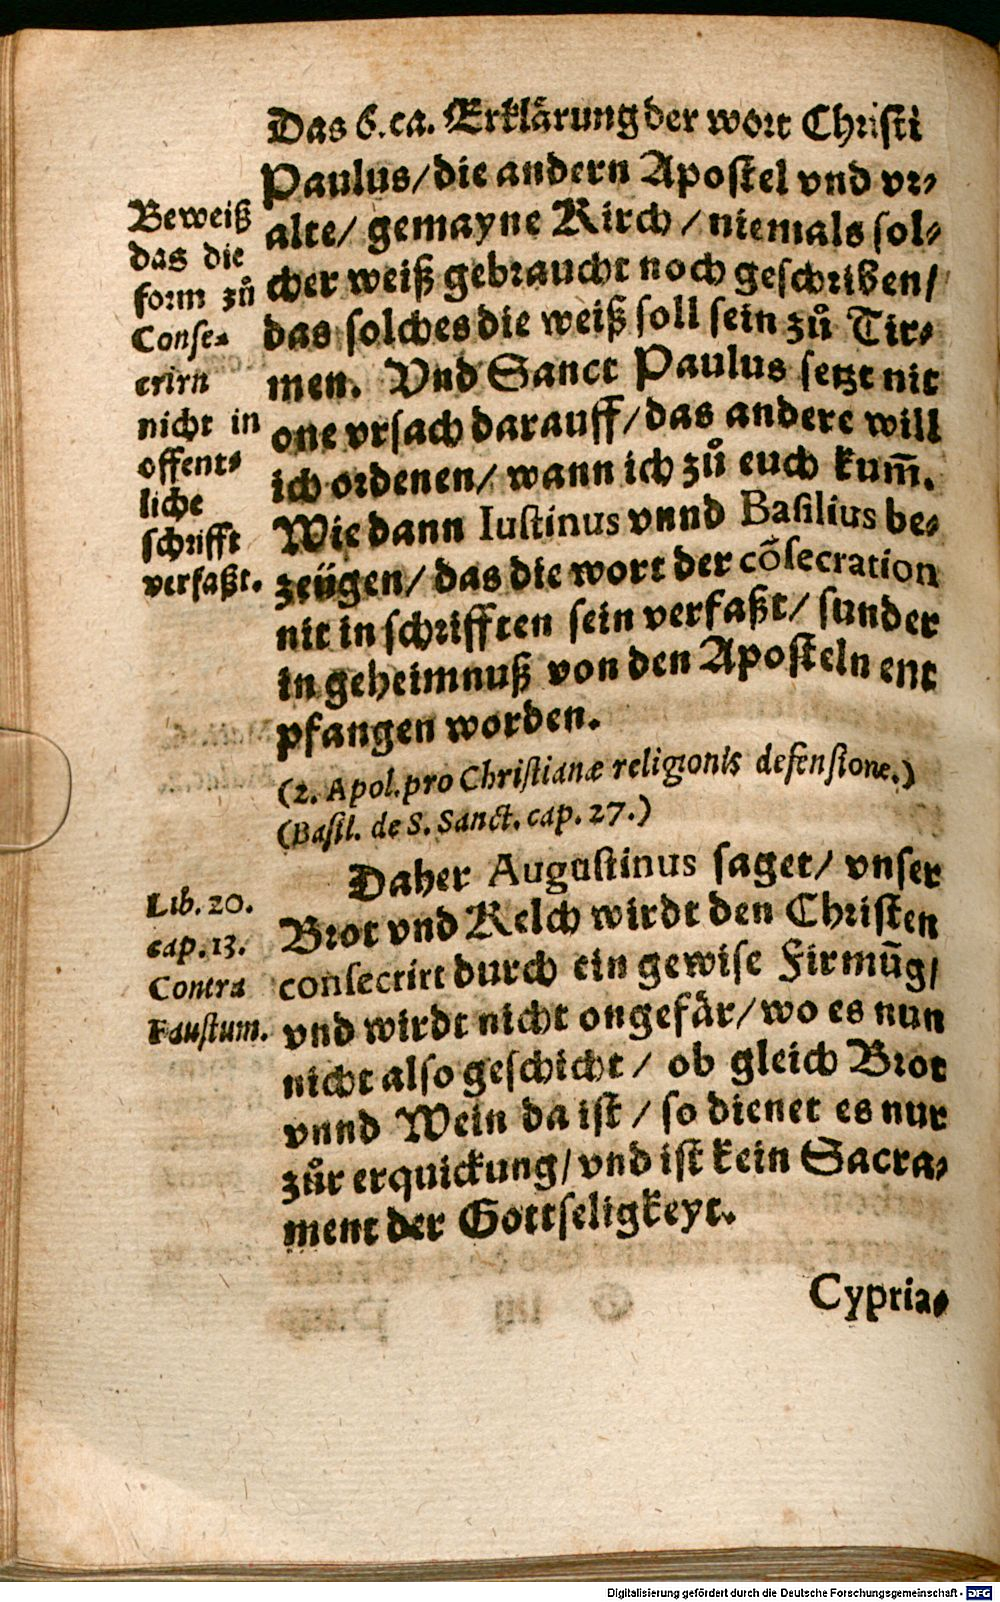 Das 6. ca. Erklärung der wort Christi
Paulus/ die andern Apostel vnd vr⸗
alte/ gemayne Kirch/ niemals sol⸗
cher weiß gebraucht noch geschriben/
das solches die weiß soll sein zů Tir⸗
men. Vnd Sanct Paulus setzt nit
one vrsach darauff/ das andere will
ich ordenen/ wann ich zů euch kum̃.
Wie dann Iustinus vnnd Basilius be⸗
zeügen/ das die wort der cõsecration
nit in schrifften sein verfaßt/ sunder
in geheimnuß von den Aposteln ent
pfangen worden.
(2. Apol. pro Christianæ religionis defensione.)
(Basil. de S. Sanct. cap. 27.)
Daher Augustinus saget/ vnser
Brot vnd Kelch wirdt den Christen
consecrirt durch ein gewise Firmũg/
vnd wirdt nicht ongefär/ wo es nun
nicht also geschicht/ ob gleich Brot
vnnd Wein da ist/ so dienet es nur
zůr erquickung/ vnd ist kein Sacra⸗
ment der Gottseligkeyt.
Cypria⸗
Beweiß
das die
form zů
Conse⸗
crirn
nicht in
offent⸗
liche
schrifft
verfaßt.
Lib. 20.
cap. 13.
Contra
Faustum.
Digitalisierung gefördert durch die Deutsche Forschungsgemeinschaft - DFG